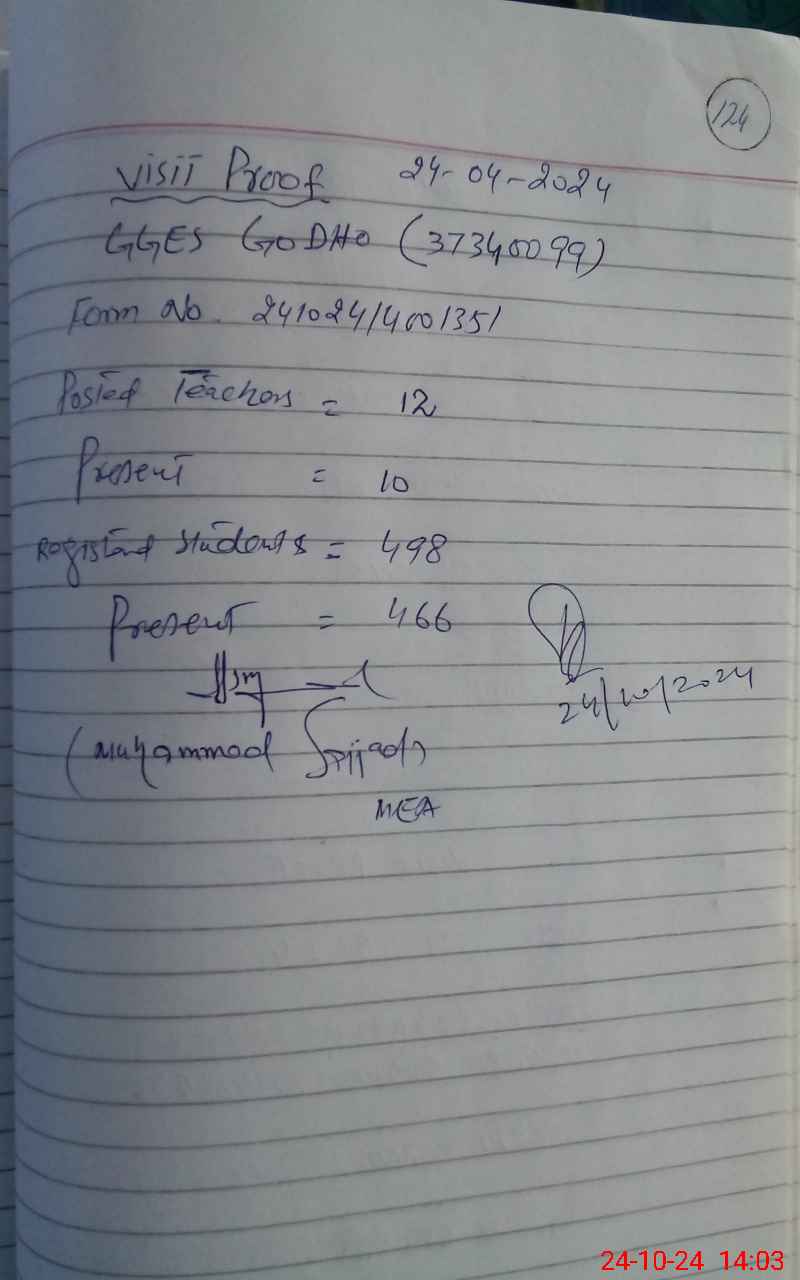 124
Visit Proof 24-04-2024
GGES GODHO (37340099)
Form No. 241024/4001351
Posted Teachers = 12
Present = 10
Registerd Students = 498
Present = 466
24/10/2024
(Muhammad Sajjad)
MEA
24-10-24 14:03